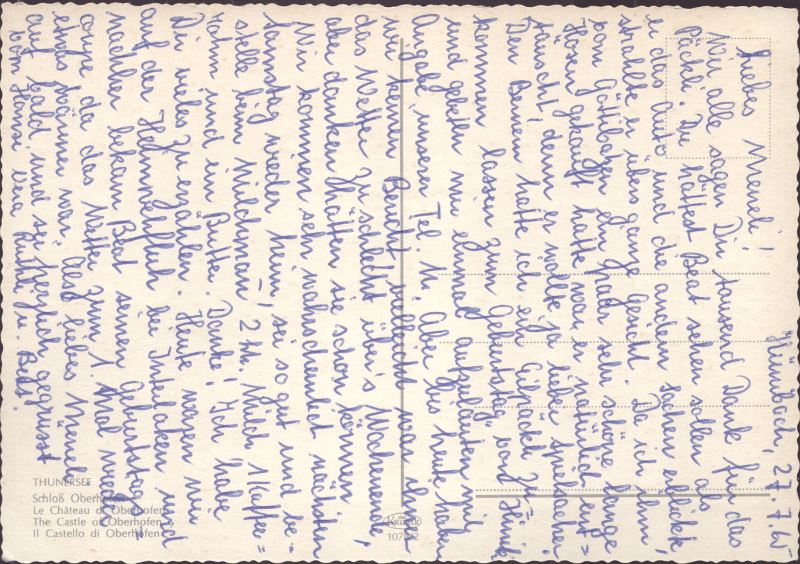 Hünibach, 27.7.65
Liebes Meneli!
Wir alle sagen Dir tausend Dank für das
Päckli. Du hättest Beat sehen sollen als
er das Auto und die andern Sachen erblickte
strahlte er übers ganze Gesicht. Da ich ihm
vom Göttibatzen ein paar sehr schöne lange
Hosen gekauft hatte war er natürlich ent=
täuscht, denn er wollte ja lieber Spielsachen
Den hatte ich ein Eilpäckli
kommen lassen zum Geburtstag
und gebeten mir einmal aufzuläuten mit
Angabe unserer Tel. Nr. Aber bis heute haben
wir keinen Bericht vielleicht war ihnen
das Wetter zu schlecht über's Wochenende,
aber danken hätten sie schon können
Wir kommen sehr wahrscheinlich nächsten
Samstag wieder heim, sei so gut und be=
stelle beim Milchmann 2 lt. Milch 1 Kaffee=
rahm und ein Butter. Danke! Ich habe
Dir vieles zu erzählen. Heute waren wir
auf der Heimwehfluh bei Interlaken und
nachher bekam Beat seinen Geburtstags=
coupe da das Wetter zum 1. Mal wieder
etwas wärmer war. Also liebes Meneli
auf bald und sei herzlich gegrüsst
von Hansi Vera Ruthli u. Beat.
THUNERSEE
Schloß Oberhofen
Le Château d'Oberhofen
The Castle of Oberhofen
Il Castello di Oberhofen